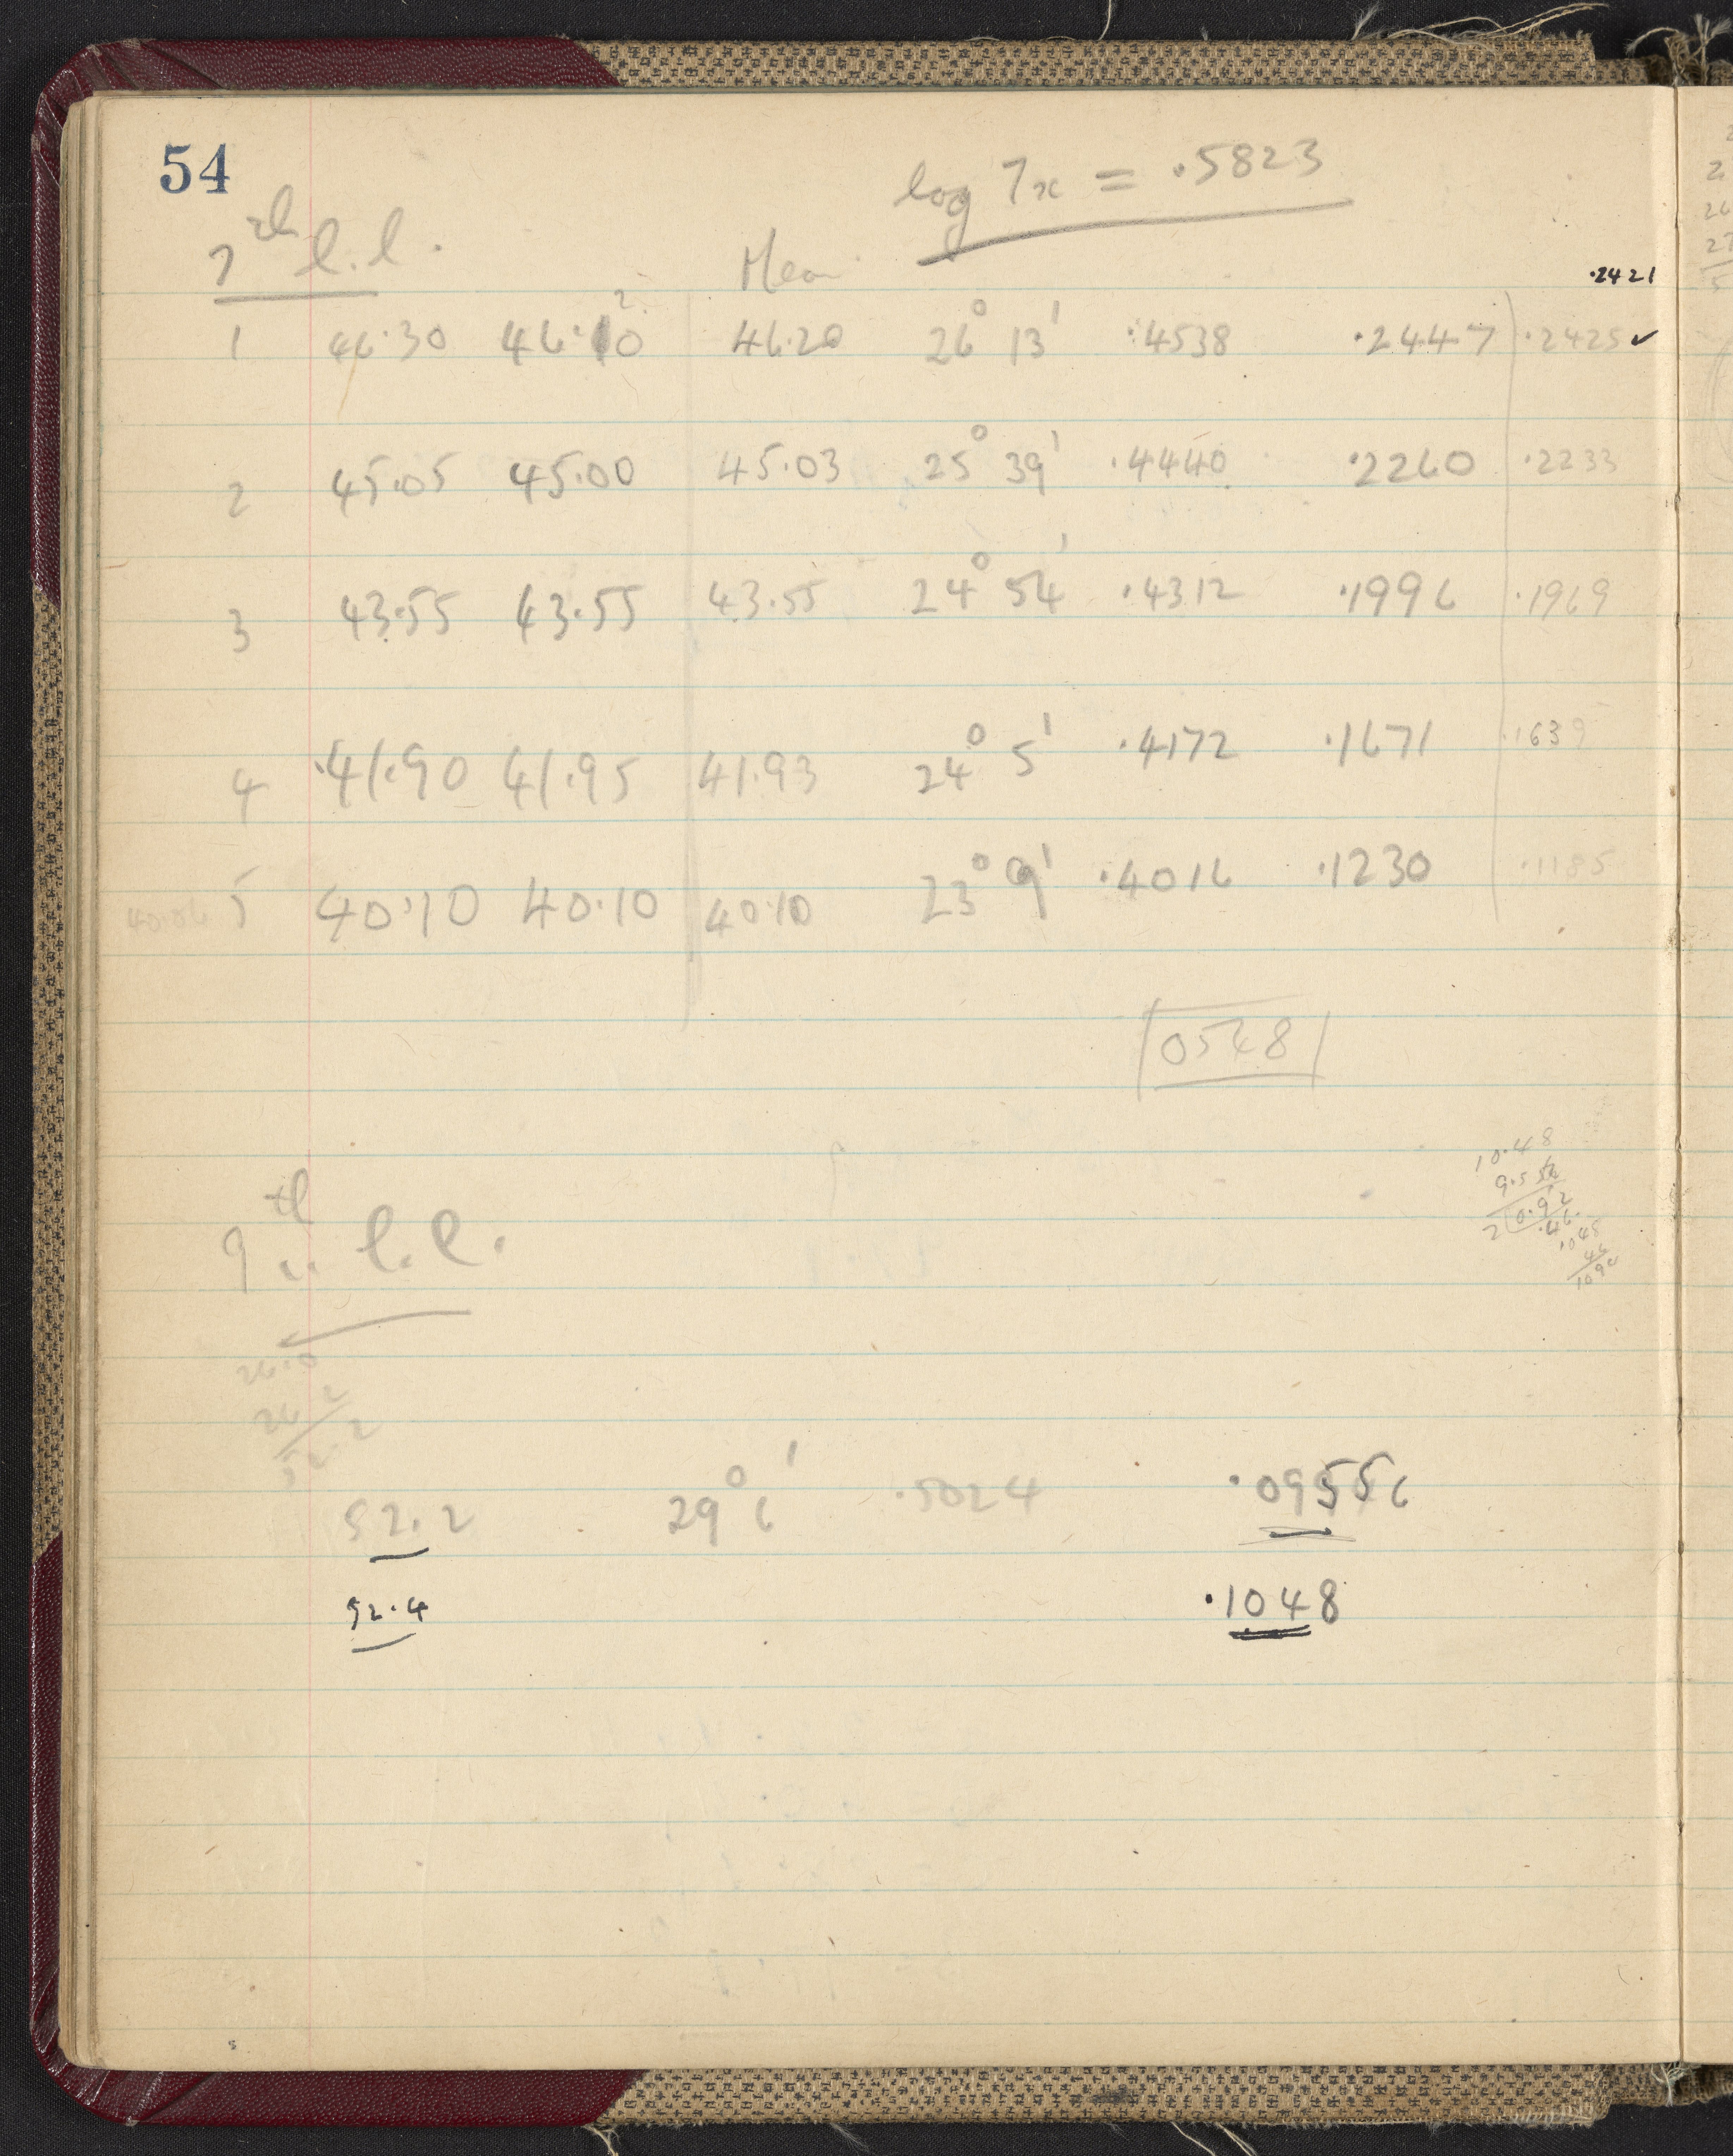 54
log 7x = .5823
7th l.l.
Mean
.2421
2
1 46.30 46.10 46.20 26° 13' .4538 .2447 .2425 ✓
2 45.05 45.00 45.03 25° 39' .4440 .2260 .2233
3 43.55 43.55 43.55 24° 54' .4312 .1996 .1969
4 .41.90 41.95 41.93 24° 5' .4172 .1671 .1639
40.06 5 40.10 40.10 40.10 23° 9' .4016 .1230 .1185
0548
10.48
9.556
2 0.92
.46
.048
46
1094
9th l.l.
26.0
26 2
52.2
52.2 29° 6' .5024 .09556
52.4 .1048